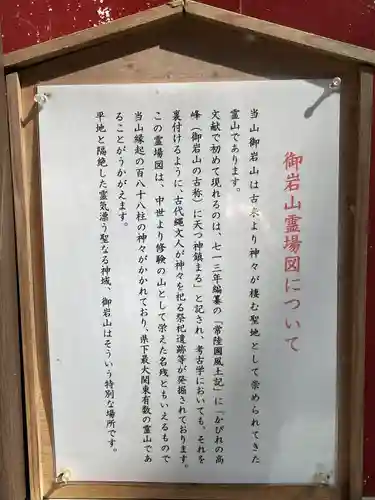 御岩山霊場図について
当山御岩山は古来より神々が棲む聖地として崇められてきた
霊山であります。
文献で初めて現れるのは、七一三年編纂の「常陸國風土記」に「かびれの高
峰(御岩山の古称)に天つ神鎮まる」と記され、考古学においても、それを
裏付けるように、古代縄文人が神々を祀る祭祀遺跡等が発掘されております。
この霊場図は、中世より修験の山として栄えた名残ともいえるもので
当山縁起の百八十八柱の神々がかかれており、県下最大関東有数の霊山であ
ることがうかがえます。
平地と隔絶した霊気漂う聖なる神域、御岩山はそういう特別な場所です。